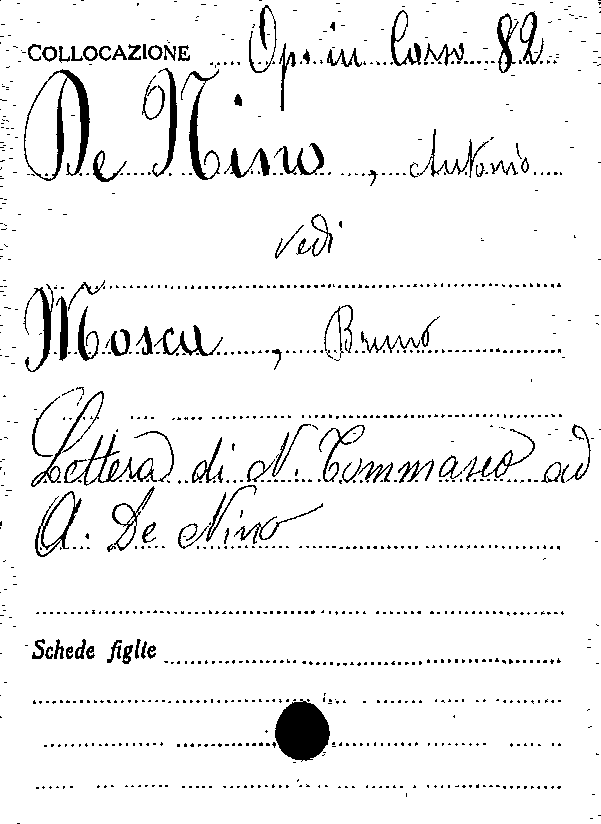 COLLOCAZIONE Op. in Corso 82
De Nino, Antonio
vedi
Mosca, Bruno
Lettera di N. Tommaseo ad
A. De Nino
Schede figlie